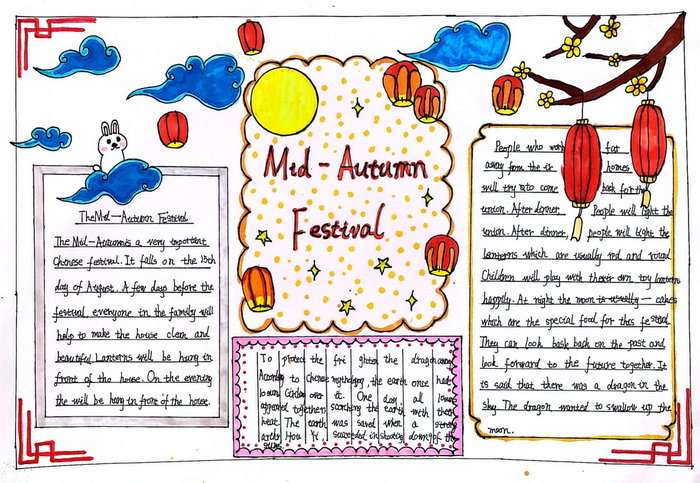 Mid-Autumn
Festival
The Mid-Autumn Festival
The Mid-Autumn is a very important
Chinese festival. It falls on the 15th
day of August. A few days before the
festival, everyone in the family will
help to make the house clean and
beautiful Lanterns will be hung in
front of tho house. On the evening
the will be hung in front of the house.
To protect the frightened the dragon
According to Chinese the earth once had
One day, all
appeared together searching the earth with
heat. The earth was saved when a
Hou Yi succeeded in shooting down
People who work far
away from the ir homes
will try to come back for the
union. After dinner, People will light the
union. After dinner, people will light the
lanterns which are usually red and round
Children will play with their own toy lanterns
happily. At night the moon is usually - cakes
which are the special food for this festival.
They can look back on the past and
look forward to the future together. It
is said that there was a dragon in the
sky. The dragon wanted to swallow up the
moon.